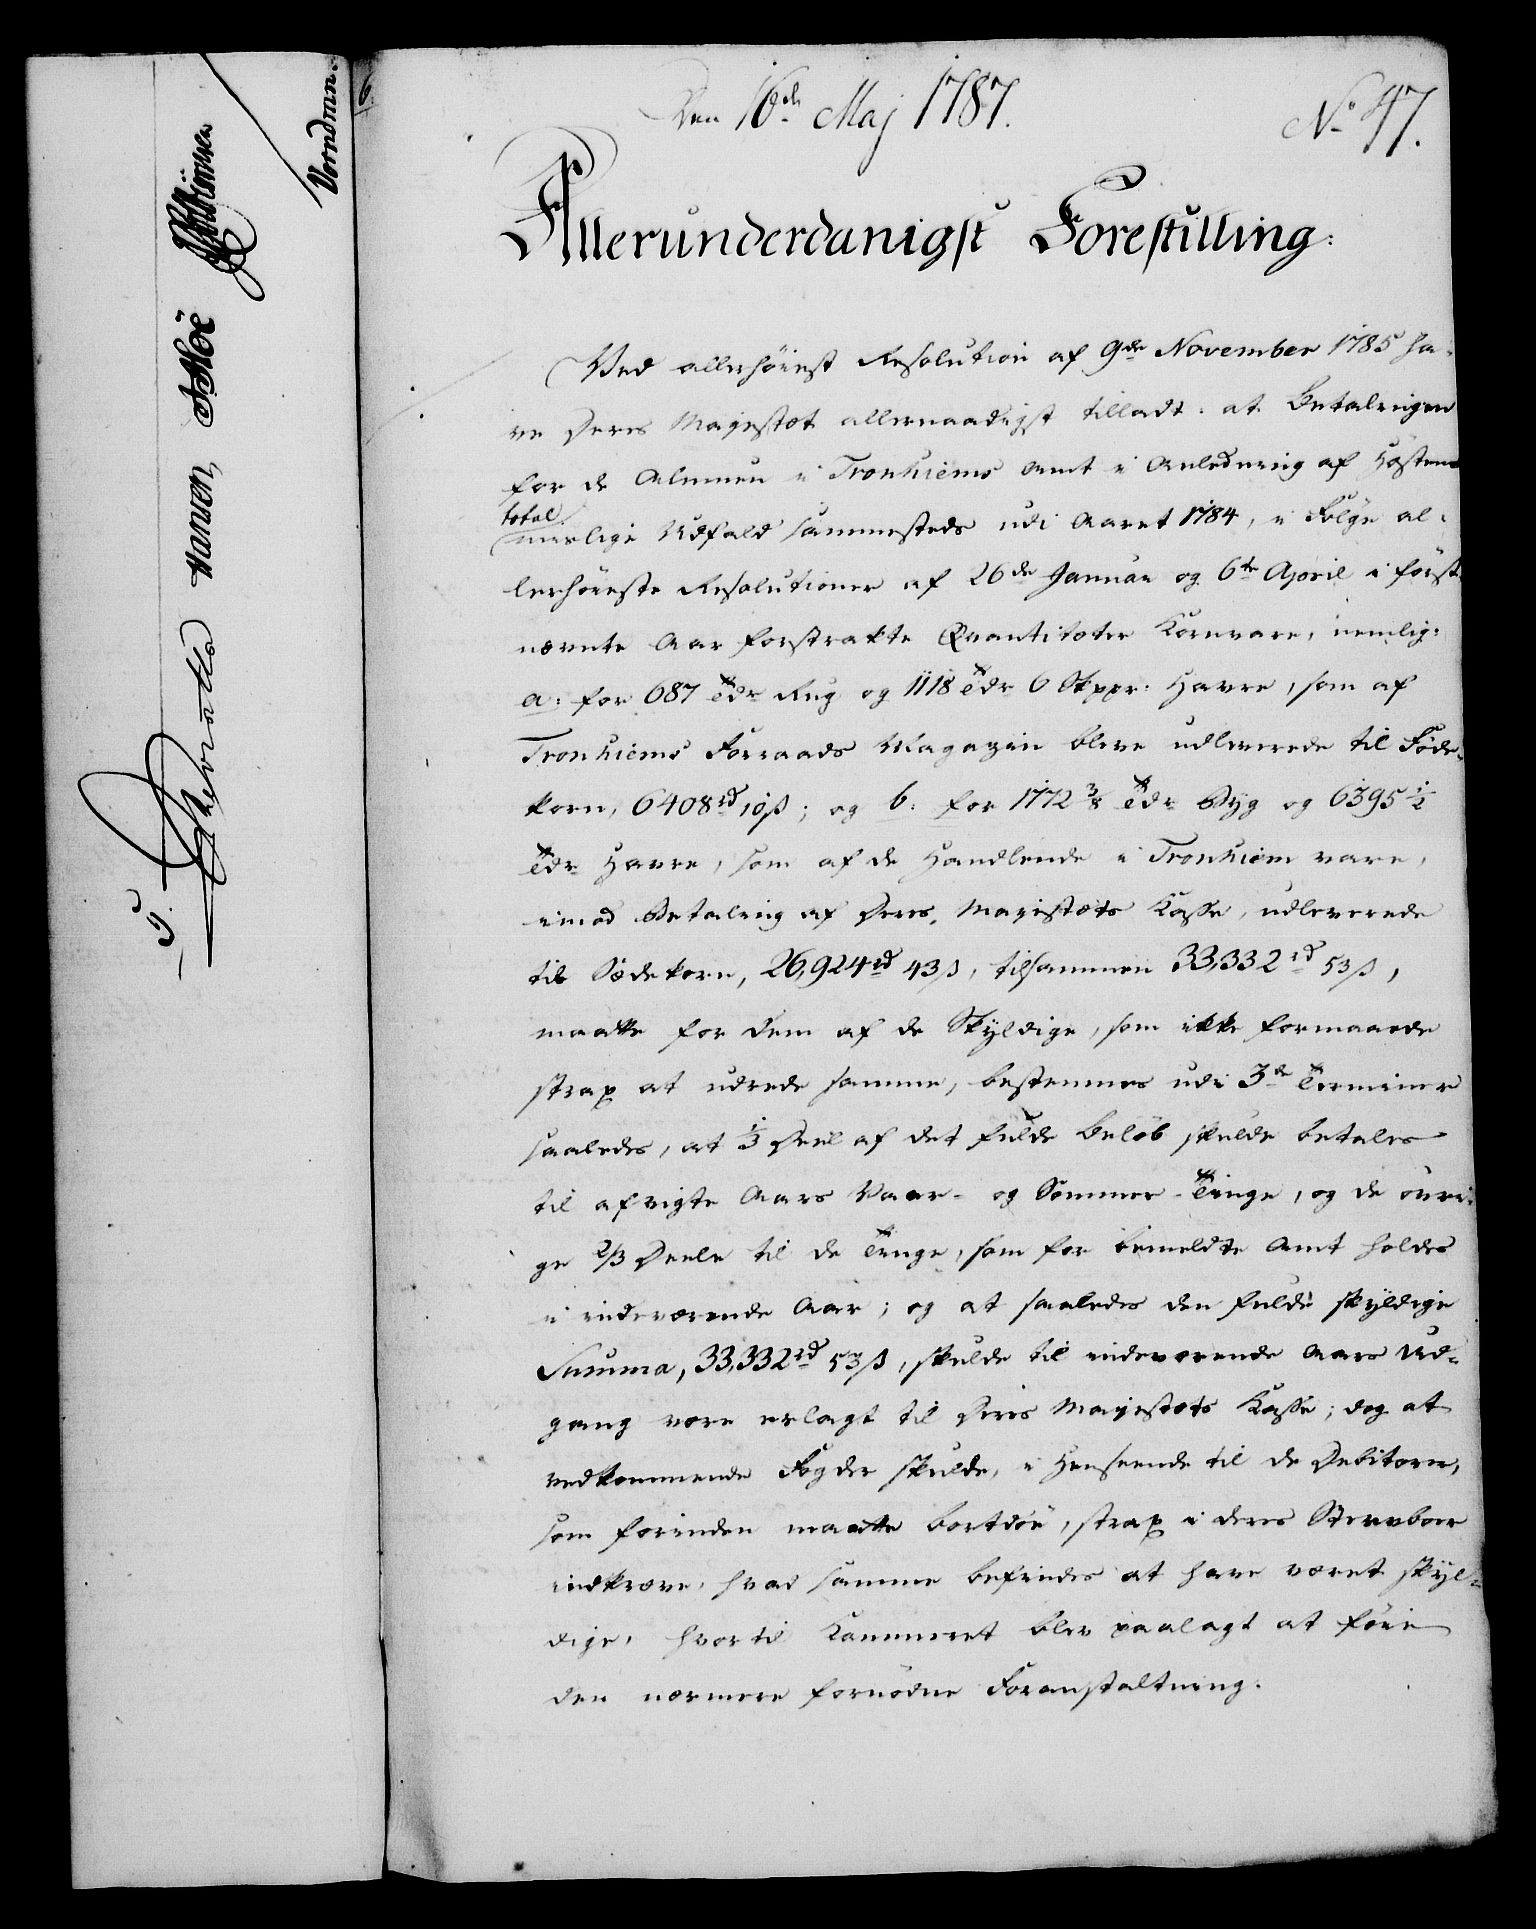 Den 16de Maj 1787.
No 47.
Allerunderdanigst Forestilling:
Ved allerhöiest Resolution af 9de November 1785 ha-
ve Deres Majestæt allernaadigst tilladt: at Betalingen
for de Almuen i Tronhiems Amt i Anledning af Höstens
total
mislige Udfald sammesteds udi Aaret 1784, i Fölge al-
lerhöieste Resolutioner af 26de Januar og 6te April i först-
nævnte Aar forstrakte Qvantiteter Kornvare, nemlig:
a: for 687 Tdr Rug og 1118 Tdr 6 Skppr: Havre, som af
Tronhiems Forraads Magazin bleve udleverede til Föde-
korn, 6408rd 10ß; og b: for 1772 3/8 Tdr Byg og 6395 1/2
Tdr Havre, som af de Handlende i Tronhiem vare,
imod Betaling af Deres Majestæts Kasse, udleverede
til Sædekorn, 26,924rd 43ß, tilsammen 33,332rd 53ß,
maatte for dem af de Skyldige, som ikke formaaede
strax at udrede samme, bestemmes udi 3de Terminer
saaledes, at 1/3 Deel af det fulde Belöb skulde betales
til afvigte Aars Vaar- og Sommer-Tinge, og de övri-
ge 2/3 Deele til de Tinge, som for bemeldte Amt holdes
i indeværende Aar; og at saaledes den fulde skyldige
Summa, 33,332rd 53ß, skulde til indeværende Aars Ud-
gang være erlagt til Deres Majestæts Kasse; dog at
vedkommende Fogder skulde, i Henseende til de Debitorer,
som forinden maatte bortdöe, strax i deres Stervboer
indkræve, hvad samme befindes at have været skyl-
dige, hvortil Kammeret blev paalagt at föie
den nærmere fornödne Foranstaltning.
Hansen,